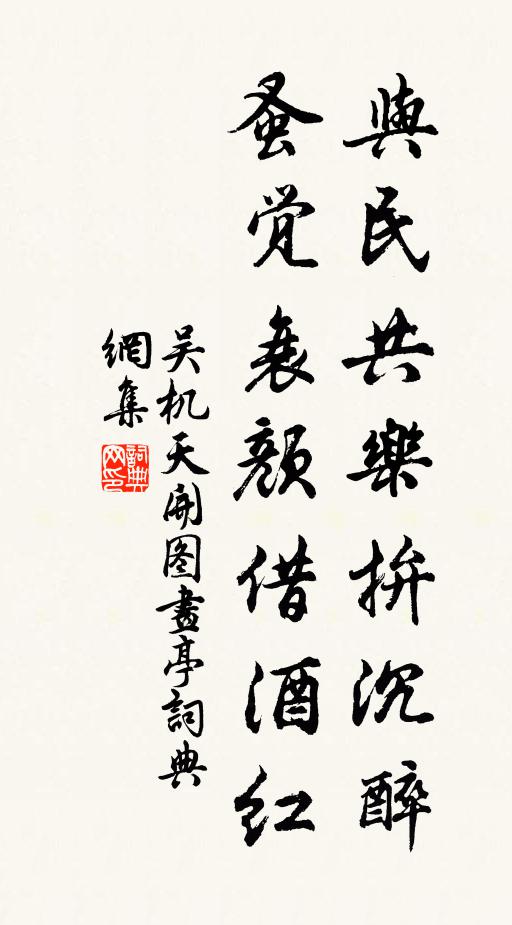 與民共樂拚沉醉
蚤觉衰顏借酒红
吴机天開图畫亭詞典
網集
詞典
网印